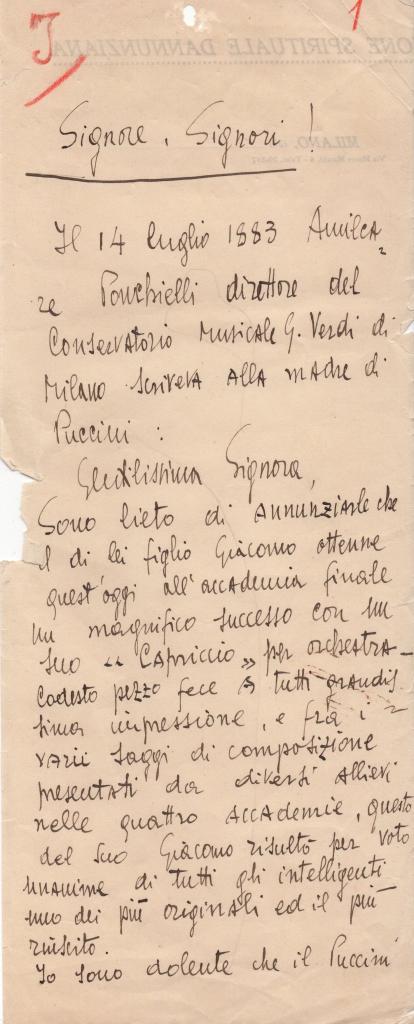 I 1
Signore, Signori!
Il 14 luglio 1883 Amilca=
re Ponchielli direttore del
Conservatorio Musicale G. Verdi di
Milano scriveva alla madre di
Puccini :
Gentilissima Signora,
Sono lieto di annunziarle che
il di lei figlio Giacomo ottenne
quest'oggi all'accademia finale
un magnifico successo con un
suo "Capriccio" per orchestra-
Codesto pezzo fece a tutti grandis
sima impressione, e fra i =
varii saggi di composizione
presentati da diversi allievi
nelle quattro accademie, questo
del suo Giacomo risultò per voto
unanime di tutti gli intelligenti
uno dei più originali ed il più
riuscito.
Io sono dolente che il Puccini